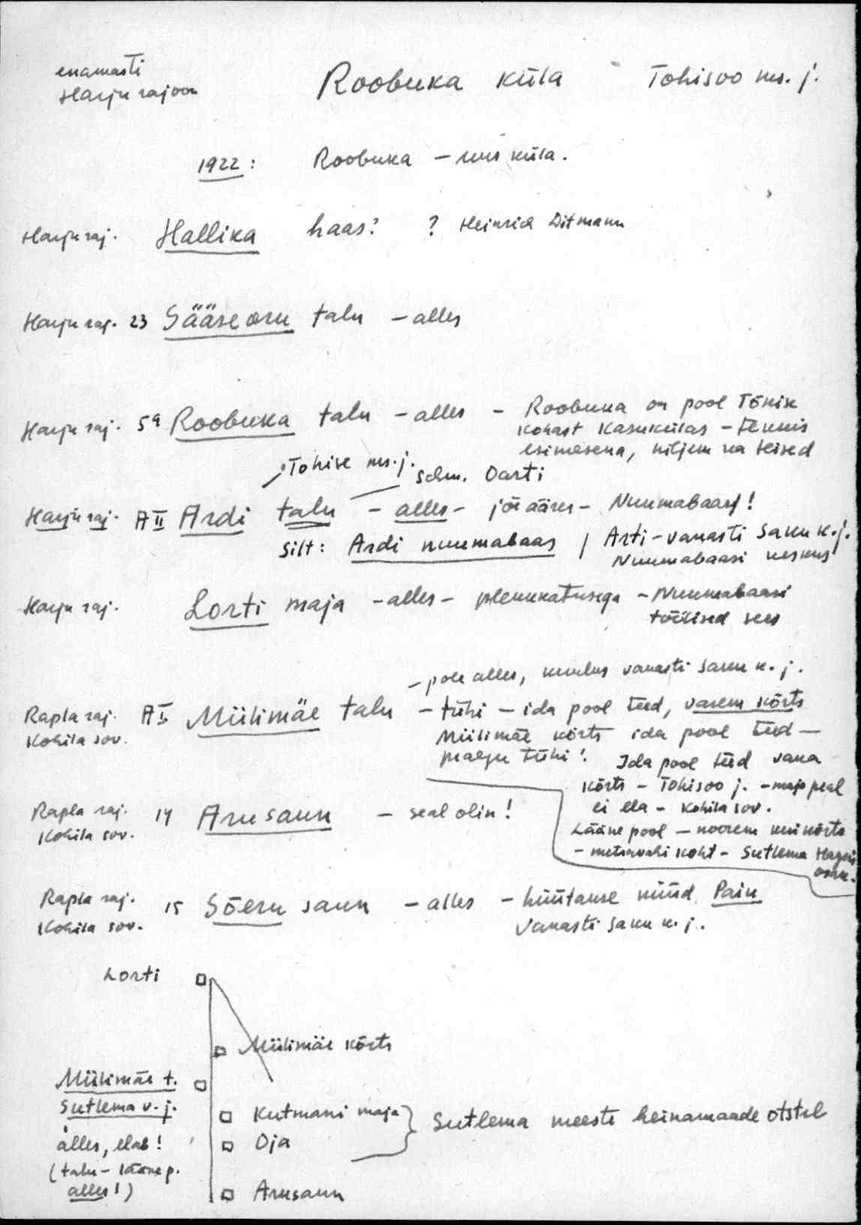 enamasti
Harju rajoon
Roobuka küla
Tohisoo ms. j.
1922: Roobuka – uus küla.
Harju raj. Hallika haas? ? Heinrich Ditmann
Harju raj. 23 Sääseoru talu – alles
Harju raj. 59 Roobuka talu – alles – Roobuka on pool Tõnik
kohast Kasukülas – tennis
esimesena, hiljem ka teised
Tohise ms. j.
sdm. Oarti
Harju raj. A II Ardi talu – alles – jõe ääres – Nuumabaas!
Silt: Ardi nuumabaas / Arti – vanasti Saku k. j.
Nuumabaasi keskus
Harju raj. Lorti maja – alles – plekkkatusega – Nuumabaasi
töölised sees
– pole alles, kuulus vanasti Saku k. j.
Rapla raj. A I Müilimäe talu – tühi – ida pool teed, varem kõrts
Kohila sov.
Müilimäe kõrts ida pool teed –
praegu tühi!
Ida pool teed vana
kõrts – Tohisoo j. – maja peal
ei ela – Kohila sov.
Lääne pool – noorem kui kõrts
– metsavahi koht – Sutlema Hageri
osak.
Rapla raj. 14 Arusaun – seal olin!
Kohila sov.
Rapla raj. 15 Sõeru saun – alles – hüütakse nüüd Paiu
Kohila sov.
vanasti Saku k. j.
Lorti
Müilimäe kõrts
Müilimäe t.
Sutlema v. j.
alles, elab!
(talu – lääne p.
alles!)
Kutmani maja
Oja
Sutlema meeste heinamaade otstel
Arusaun